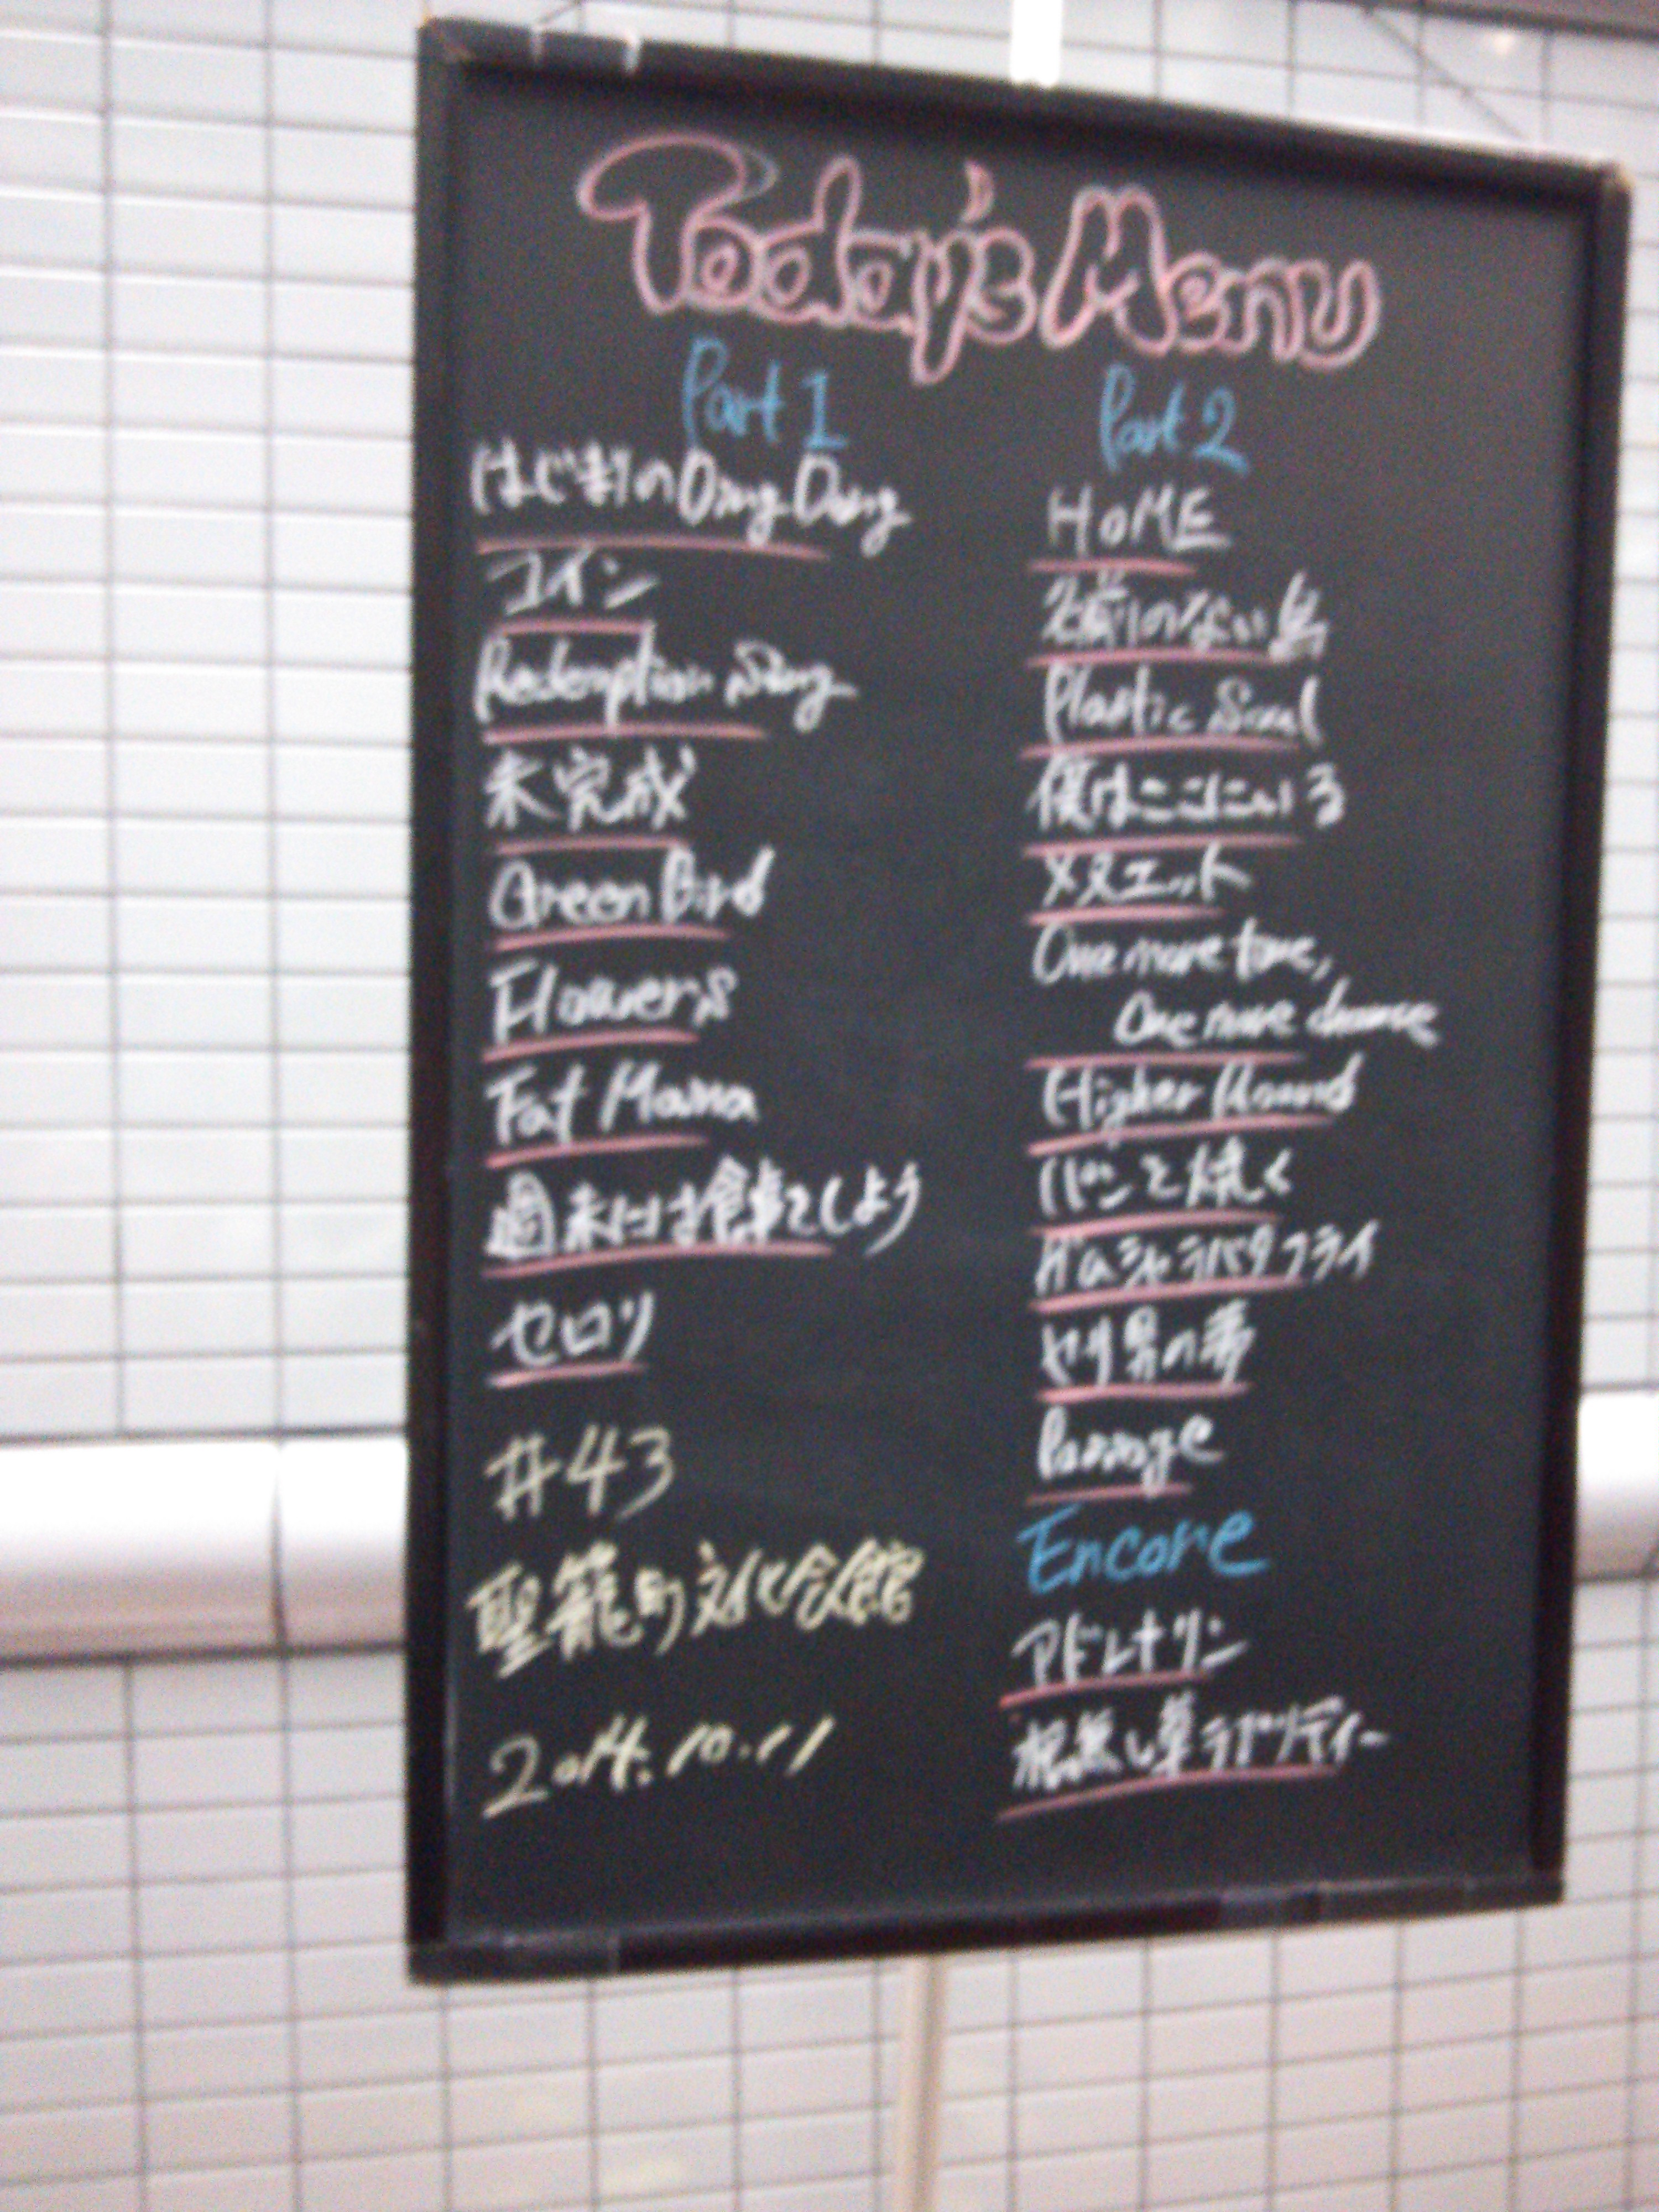 Today's Menu
Part 1
はじまりのDing Dong
コイン
Redemption Song
未完成
Green Bird
Flowers
Fat Mama
週末にはお食事でもしよう
セロリ
#43
聖籠町文化会館
2014.10.11
Part 2
HOME
名前のない鳥
Plastic Soul
僕はここにいる
メヌエット
One more time,
One more chance
Higher Ground
パンを焼く
ガムシャラバタフライ
ヤサ男の夢
Passage
Encore
アドレナリン
根無し草ラプソディー